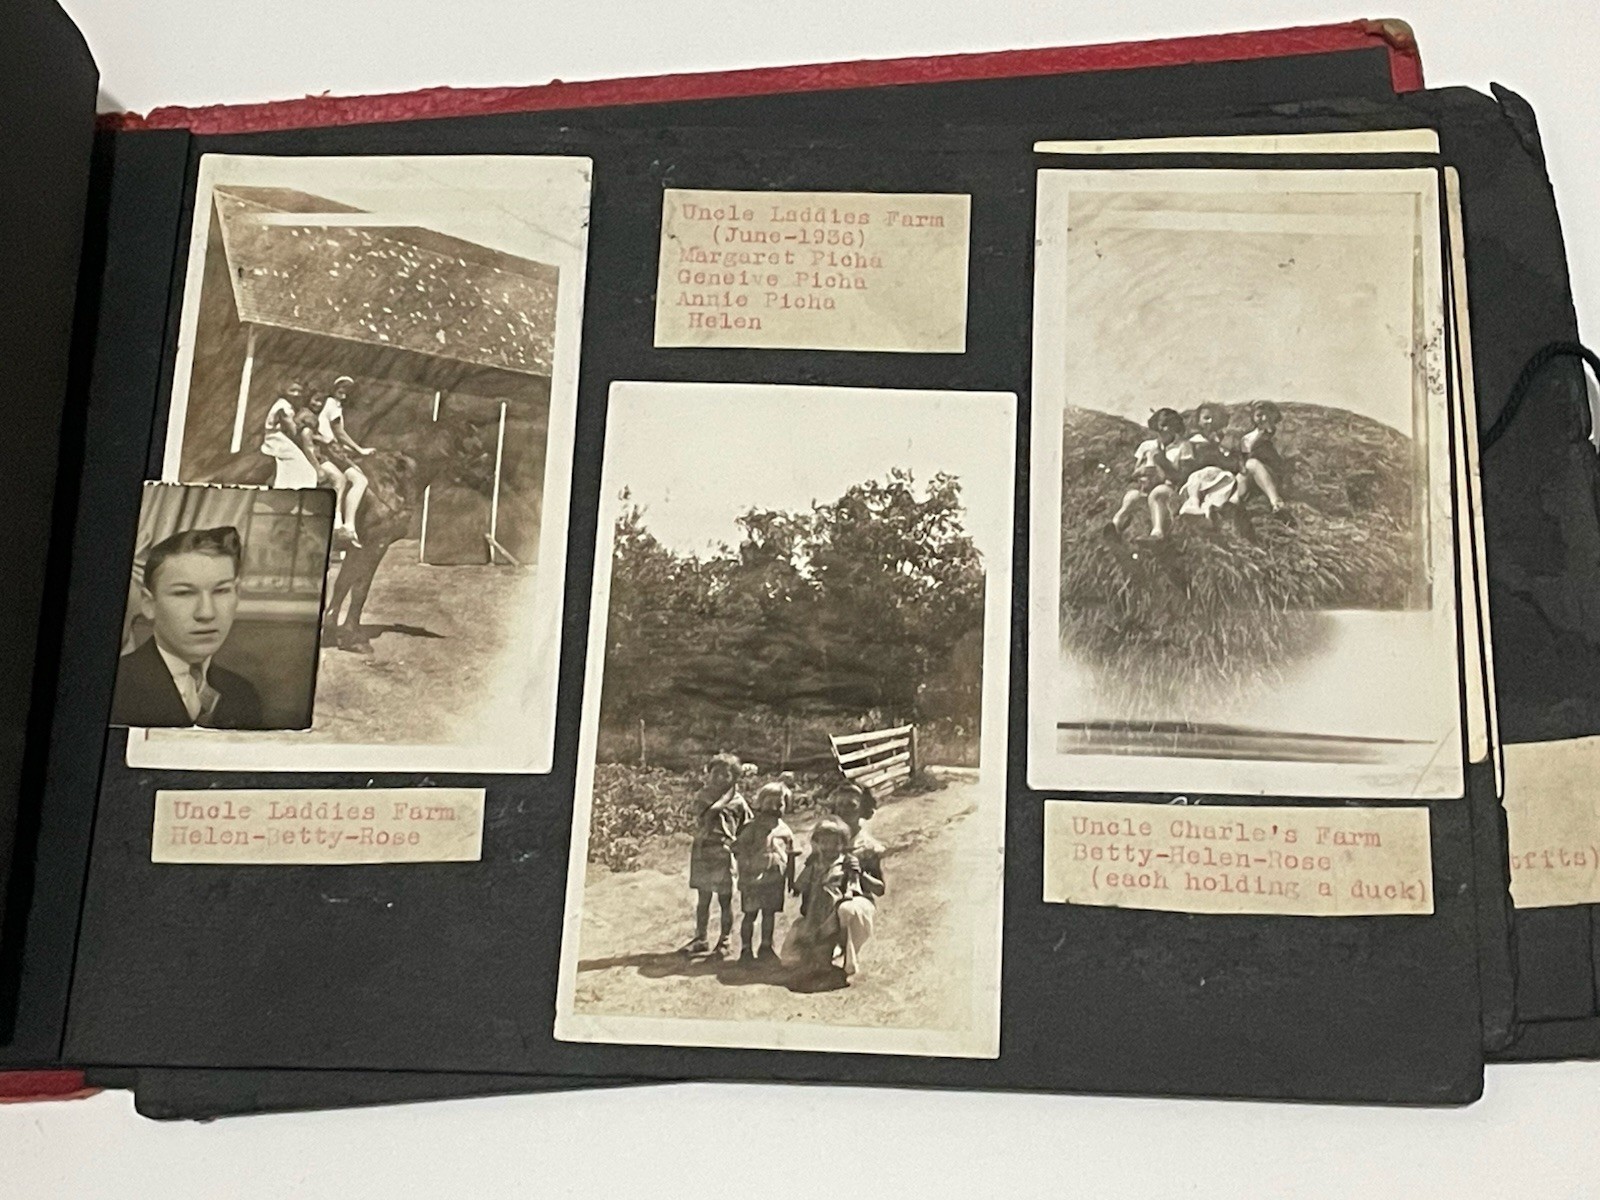 Uncle Laddies Farm
(June-1936)
Margaret Picha
Geneive Picha
Annie Picha
Helen
Uncle Laddies Farm
Helen-Betty-Rose
Uncle Charle's Farm
Betty-Helen-Rose
(each holding a duck)
tfits)